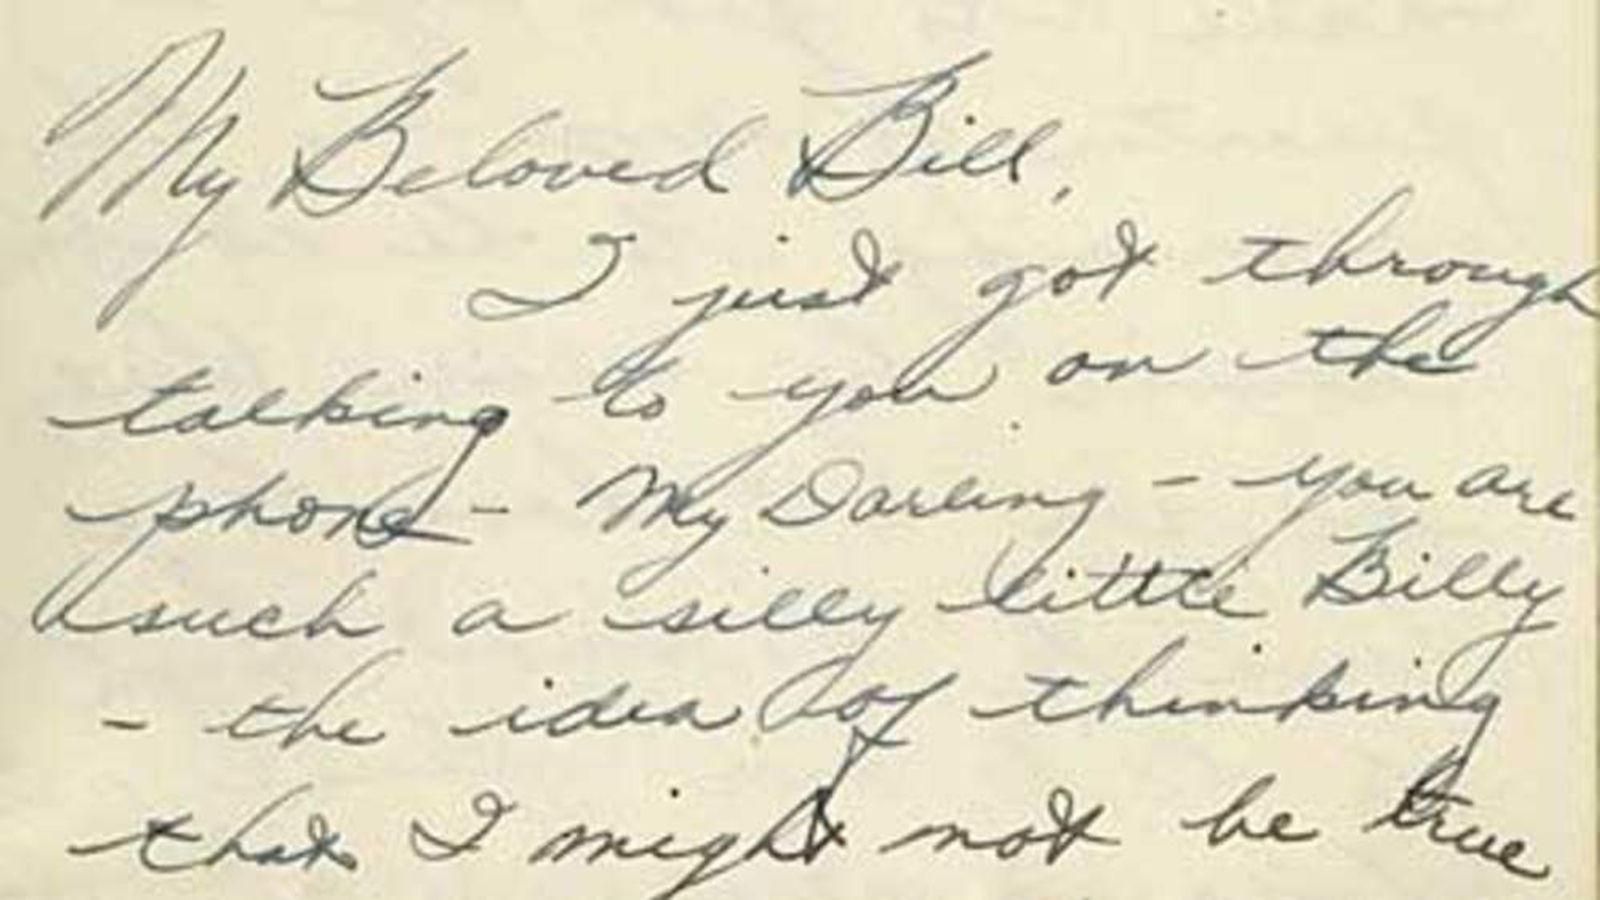 My Beloved Bill,
I just got through
talking to you on the
phone - My Darling - you are
such a silly little Billy
- the idea of thinking
that I might not be true